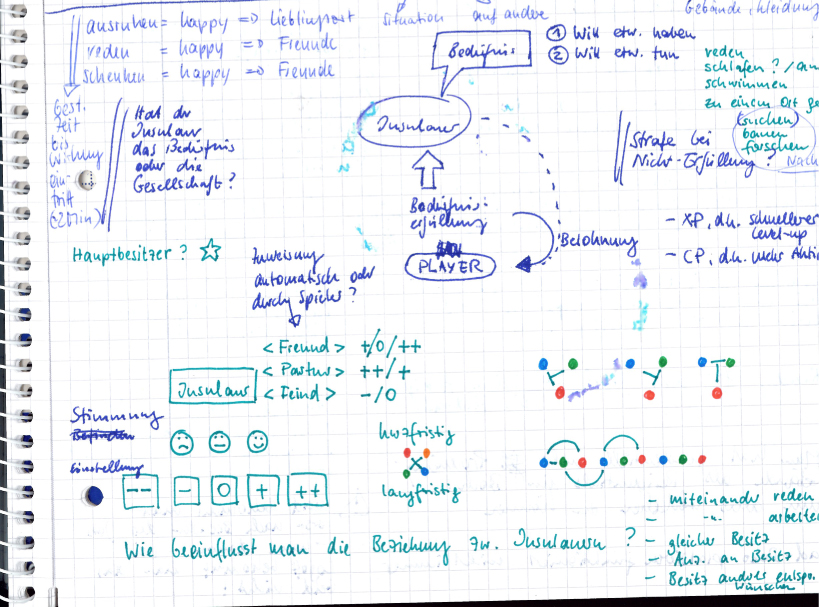 ausruhen = happy => Lieblingsort
reden = happy => Freunde
schenken = happy => Freunde
Situation auf andere
Gebäude, Kleidung
Bedürfnis
① Will etw. haben
② Will etw. tun
reden
schlafen?
schwimmen
zu einem Ort
(suchen)
bauen
forschen
best.
Zeit
bis
Wirkung
ein-
tritt
Hat der
Insulaner
das Bedürfnis
oder die
Gesellschaft?
Insulaner
Strafe bei
Nicht-Erfüllung?
Bedürfnis-
erfüllung
PLAYER
Belohnung
- XP, d.h. schnellerer
Level-up
- CP, d.h. mehr
Hauptbesitzer? ☆
Zuweisung
automatisch oder
durch Spieler?
Insulaner
<Freund> +/0/++
<Partner> ++/+
<Feind> -/0
Stimmung
Einstellung
-- - 0 + ++
kurzfristig
langfristig
Wie beeinflusst man die Beziehung zw. Insulanern?
- miteinander reden
- -"- arbeiten
- gleicher Besitz
- Anz. an Besitz
- Besitz anderes entspr.
Wünschen